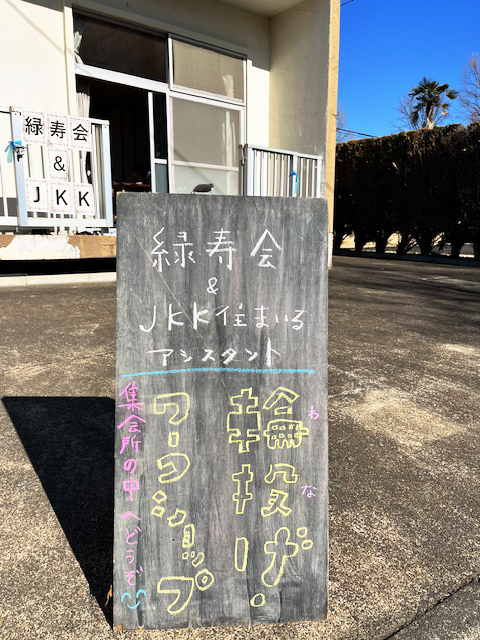 緑寿会
&
JKK
緑寿会
&
JKK住まいる
アシスタント
輪投げ・
わ
な
ワークショップ
集会所の中へどうぞ